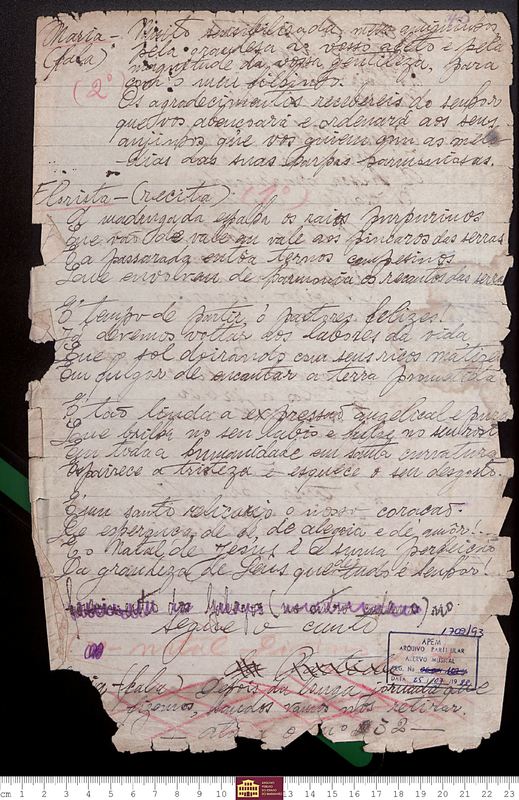 Maria - Muito sensibilisada, meus anjinhos
(fala) pela grandesa do vosso afeto e pela
magnitude da vossa gentileza, para
com o meu filhinho.
(2º) Os agradecimentos recebereis do senhor
que vos abençoará e ordenará aos seus
anjinhos que vos guiem com as melo-
dias das suas harpas harmoniosas.
Florista - (recita) (1º)
A madrugada espalha os raios purpurinos
que vão de vale em vale aos pincaros das serras
E a passarada entôa ternos campesinos
Que envolvem de harmonia os recantos das serras
E' tempo de partir ó pastores felizes!
Já devemos voltar aos labores da vida
Que o sol doirando com seus ricos matizes
Em fulgor de encantar a terra prometida
E' tão linda a expressão angelical e pura
Que brilha no seu labio e no seu rosto
em toda a humanidade em
a tristeza e esquece o seu desgosto.
E' um santo relicario o nosso coração
De esperança de fé, de alegria e de amôr!
E o Natal de Jesús é de suma perfeição
Da grandeza de Deus que é tudo e senhor!
no
segue o canto
1703/93
APEM
ARQUIVO PARTICULAR
ACERVO MUSICAL
REG. No
DATA
(fala) Depois da longa jornada que
fizemos, vamos nos retirar.
nº 32 -
cm 1 2 3 4 5 6 7 8 9 10 13 14 15 16 17 18 19 20 21 22 23